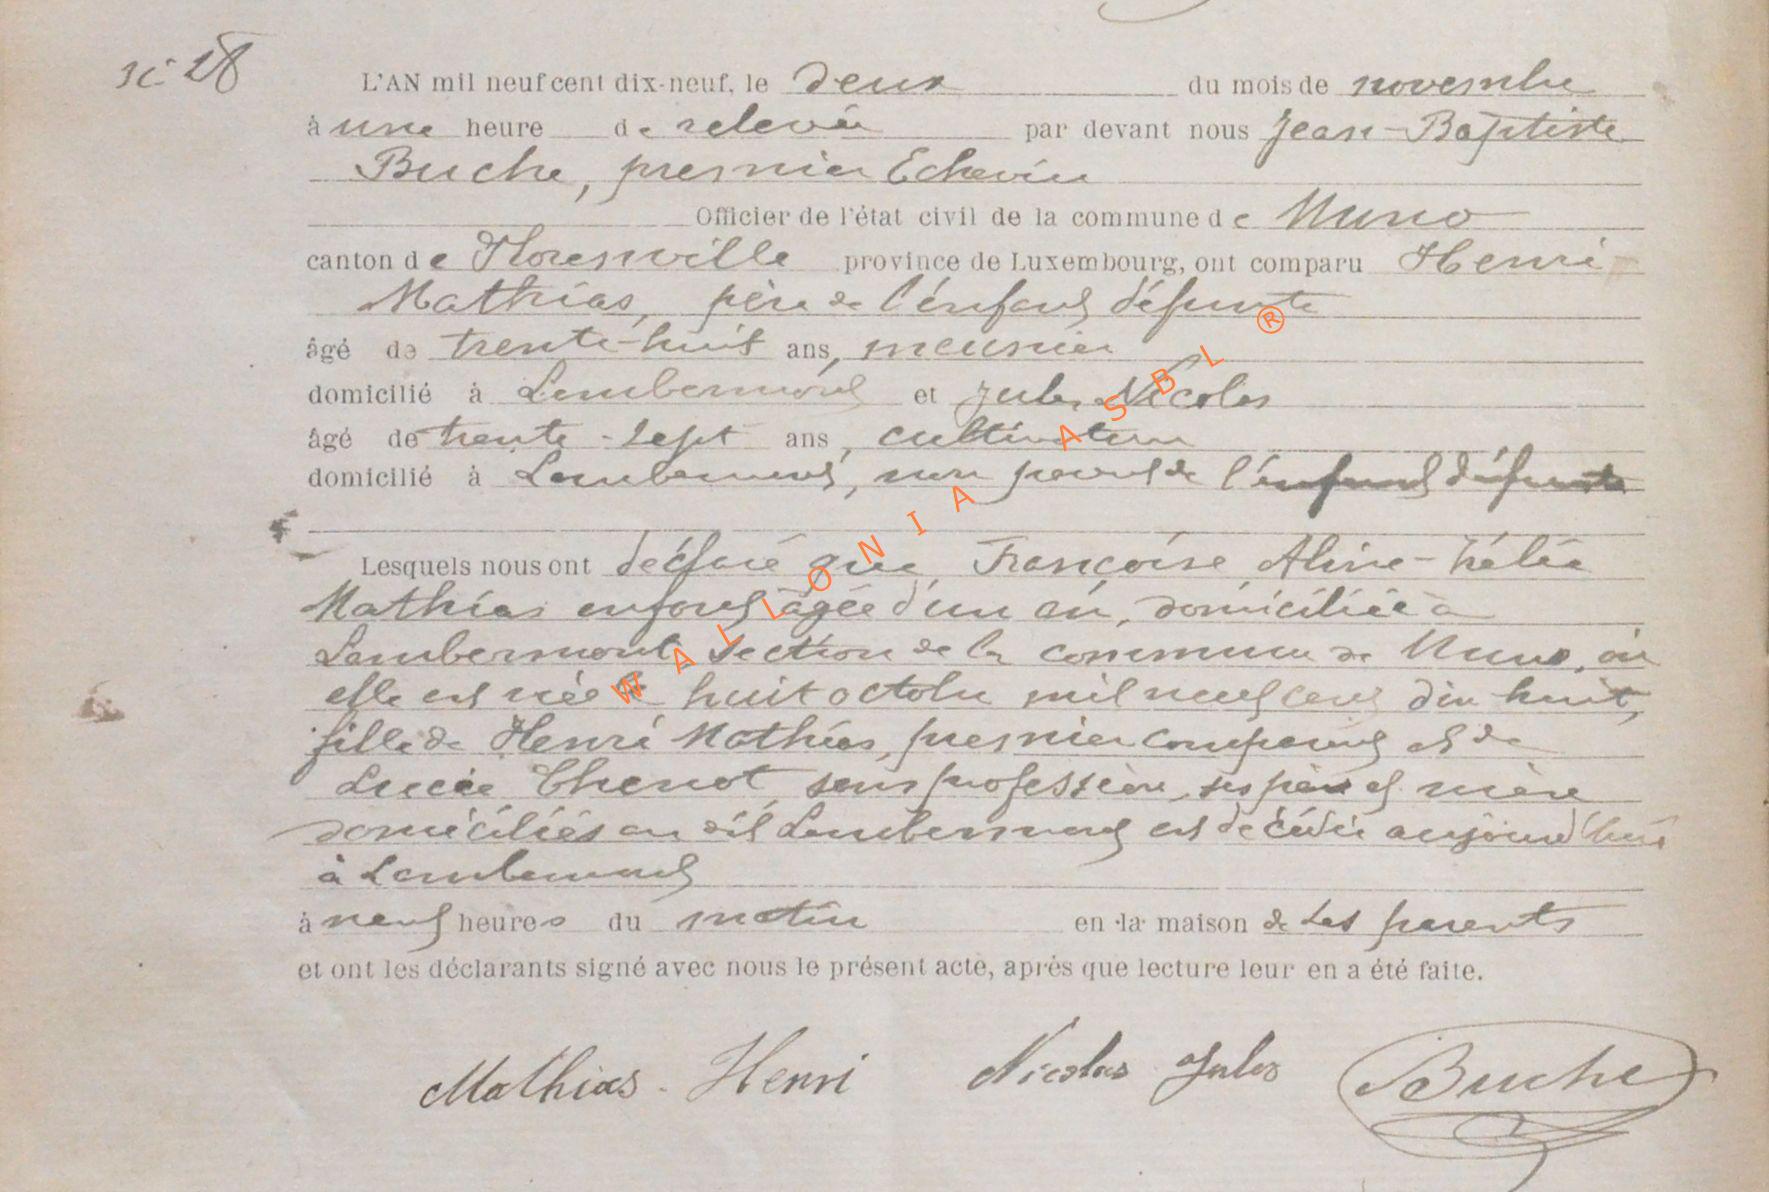 N° 28
L'AN mil neuf cent dix-neuf, le deux du mois de novembre
à une heure de relevée par devant nous Jean-Baptiste
Buche, premier Echevin
Officier de l'état civil de la commune de Muno
canton de Florenville province de Luxembourg, ont comparu Henri
Mathias, père de l'enfant défunte
âgé de trente-huit ans, meunier
domicilié à Lambermont et Jules Nicolas
âgé de trente-sept ans, cultivateur
domicilié à Lambermont, non parent de l'enfant défunte
Lesquels nous ont déclaré que Françoise Aline-Zélie
Mathias enfant âgée d'un an, domiciliée à
Lambermont, section de la commune de Muno, où
elle est née le huit octobre mil neuf cent dix huit,
fille de Henri Mathias, premier comparant et de
Lucie Thenot, sans profession, ses père et mère
domiciliés au dit Lambermont est décédée aujourd'hui
à Lambermont
à neuf heures du matin en la maison de ses parents
et ont les déclarants signé avec nous le présent acte, après que lecture leur en a été faite.
Mathias Henri Nicolas Jules Buche
WALLONIA ASBL ®